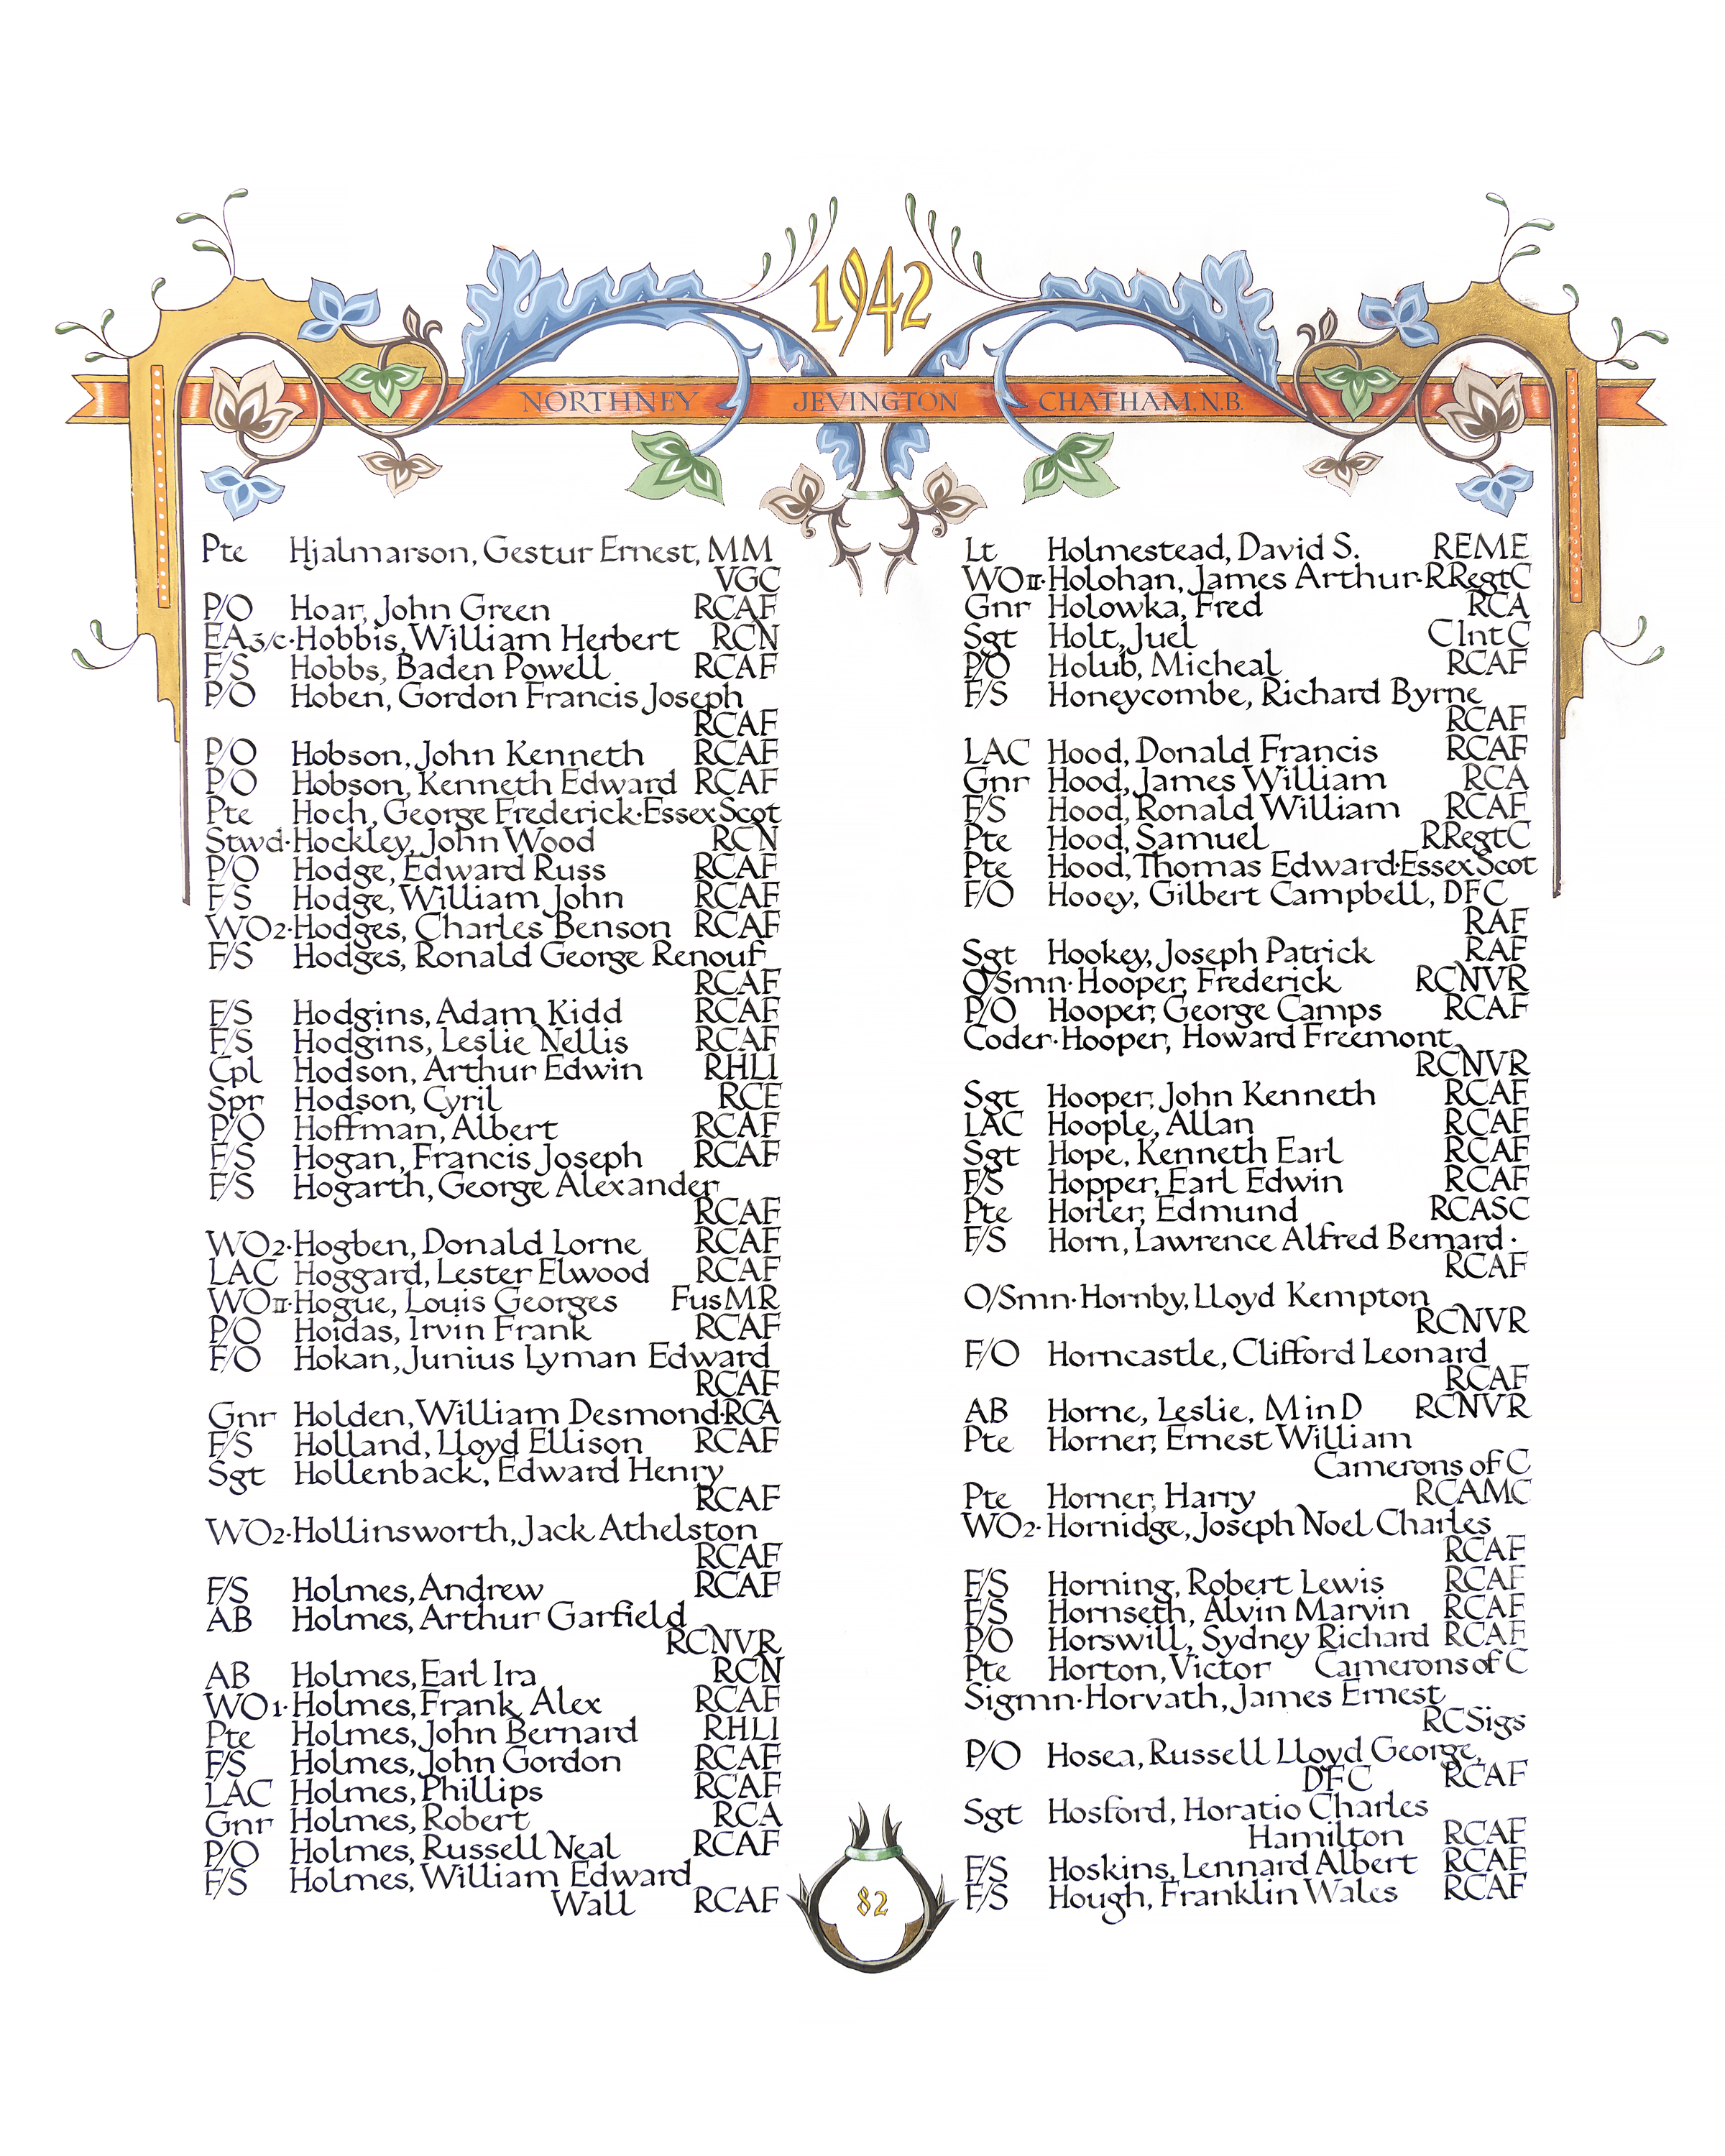 1942
NORTHNEY JEVINGTON CHATHAM, N.B.
Pte Hjalmarson, Gestur Ernest, MM
VGC
P/O Hoar, John Green RCAF
EA3/c·Hobbis, William Herbert RCN
F/S Hobbs, Baden Powell RCAF
P/O Hoben, Gordon Francis Joseph
RCAF
P/O Hobson, John Kenneth RCAF
P/O Hobson, Kenneth Edward RCAF
Pte Hoch, George Frederick·Essex Scot
Stwd·Hockley, John Wood RCN
P/O Hodge, Edward Russ RCAF
F/S Hodge, William John RCAF
WO2·Hodges, Charles Benson RCAF
F/S Hodges, Ronald George Renouf
RCAF
F/S Hodgins, Adam Kidd RCAF
F/S Hodgins, Leslie Nellis RCAF
Cpl Hodson, Arthur Edwin RHLI
Spr Hodson, Cyril RCE
P/O Hoffman, Albert RCAF
F/S Hogan, Francis Joseph RCAF
F/S Hogarth, George Alexander
RCAF
WO2·Hogben, Donald Lorne RCAF
LAC Hoggard, Lester Elwood RCAF
WOII·Hogue, Louis Georges FusMR
P/O Hoidas, Irvin Frank RCAF
F/O Hokan, Junius Lyman Edward
RCAF
Gnr Holden, William Desmond·RCA
F/S Holland, Lloyd Ellison RCAF
Sgt Hollenback, Edward Henry
RCAF
WO2·Hollinsworth, Jack Athelston
RCAF
F/S Holmes, Andrew RCAF
AB Holmes, Arthur Garfield
RCNVR
AB Holmes, Earl Ira RCN
WO1·Holmes, Frank Alex RCAF
Pte Holmes, John Bernard RHLI
F/S Holmes, John Gordon RCAF
LAC Holmes, Phillips RCAF
Gnr Holmes, Robert RCA
P/O Holmes, Russell Neal RCAF
F/S Holmes, William Edward
Wall RCAF
Lt Holmestead, David S. REME
WOII·Holohan, James Arthur·RRegtC
Gnr Holowka, Fred RCA
Sgt Holt, Juel CIntC
P/O Holub, Micheal RCAF
F/S Honeycombe, Richard Byrne
RCAF
LAC Hood, Donald Francis RCAF
Gnr Hood, James William RCA
F/S Hood, Ronald William RCAF
Pte Hood, Samuel RRegtC
Pte Hood, Thomas Edward·Essex Scot
F/O Hooey, Gilbert Campbell, DFC
RAF
Sgt Hookey, Joseph Patrick RAF
O/Smn·Hooper, Frederick RCNVR
P/O Hooper, George Camps RCAF
Coder·Hooper, Howard Freemont
RCNVR
Sgt Hooper, John Kenneth RCAF
LAC Hoople, Allan RCAF
Sgt Hope, Kenneth Earl RCAF
F/S Hopper, Earl Edwin RCAF
Pte Horler, Edmund RCASC
F/S Horn, Lawrence Alfred Bernard·
RCAF
O/Smn·Hornby, Lloyd Kempton
RCNVR
F/O Horncastle, Clifford Leonard
RCAF
AB Horne, Leslie, M in D RCNVR
Pte Horner, Ernest William
Camerons of C
Pte Horner, Harry RCAMC
WO2·Hornidge, Joseph Noel Charles
RCAF
F/S Horning, Robert Lewis RCAF
F/S Hornseth, Alvin Marvin RCAF
P/O Horswill, Sydney Richard RCAF
Pte Horton, Victor Camerons of C
Sigmn·Horvath, James Ernest
RCSigs
P/O Hosea, Russell Lloyd George,
DFC RCAF
Sgt Hosford, Horatio Charles
Hamilton RCAF
F/S Hoskins, Lennard Albert RCAF
F/S Hough, Franklin Wales RCAF
82